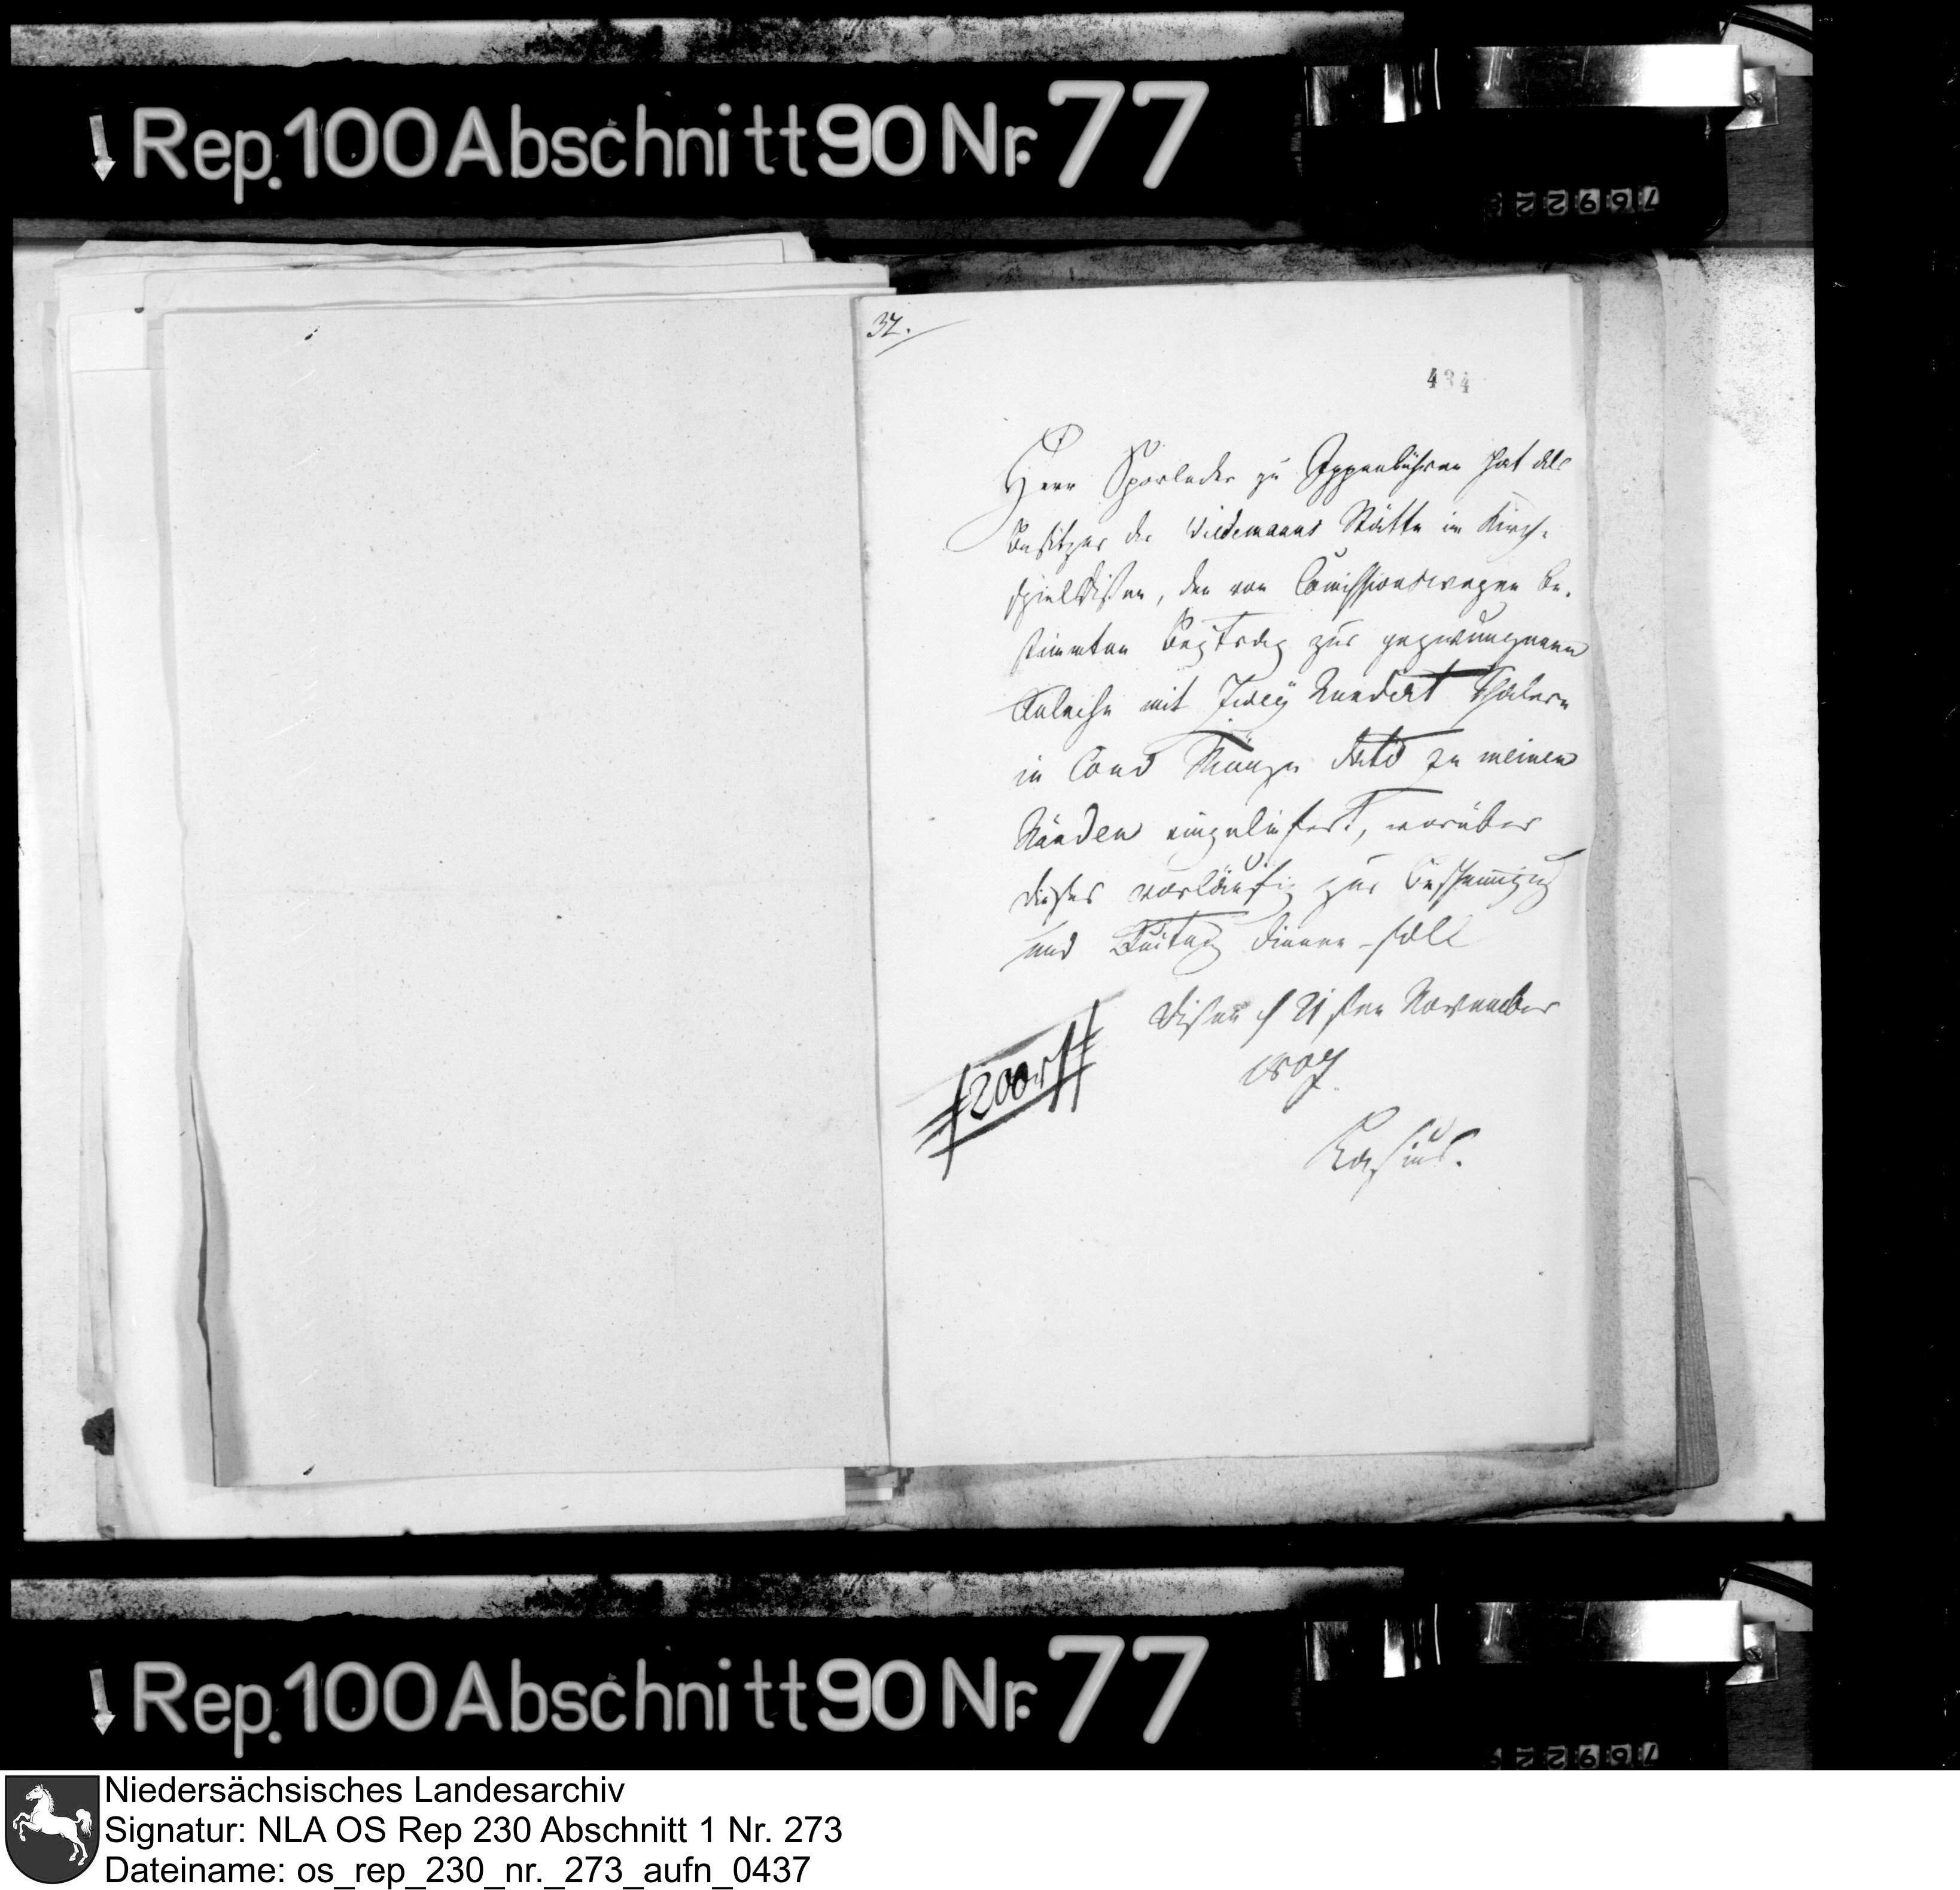 Rep. 100 Abschnitt 90 Nr. 77
37.
434
Herr Sporleder zu Ippenbühren hat als
Besitzer der Wiedemanns Stätte im Kirch-
spiel Dißen, den von Commissionswegen be-
stimmten Beytrag zur gezwungenen
Anleihe mit Zwey Hundert Thalern
in Conv Münze dato zu meinen
Händen eingeliefert, worüber
dieses vorläufig zur Bescheinigung
und Quitung dienen soll
Dißen d 21sten November
1807.
200 rt
Rep. 100 Abschnitt 90 Nr. 77
Niedersächsisches Landesarchiv
Signatur: NLA OS Rep 230 Abschnitt 1 Nr. 273
Dateiname: os_rep_230_nr._273_aufn_0437